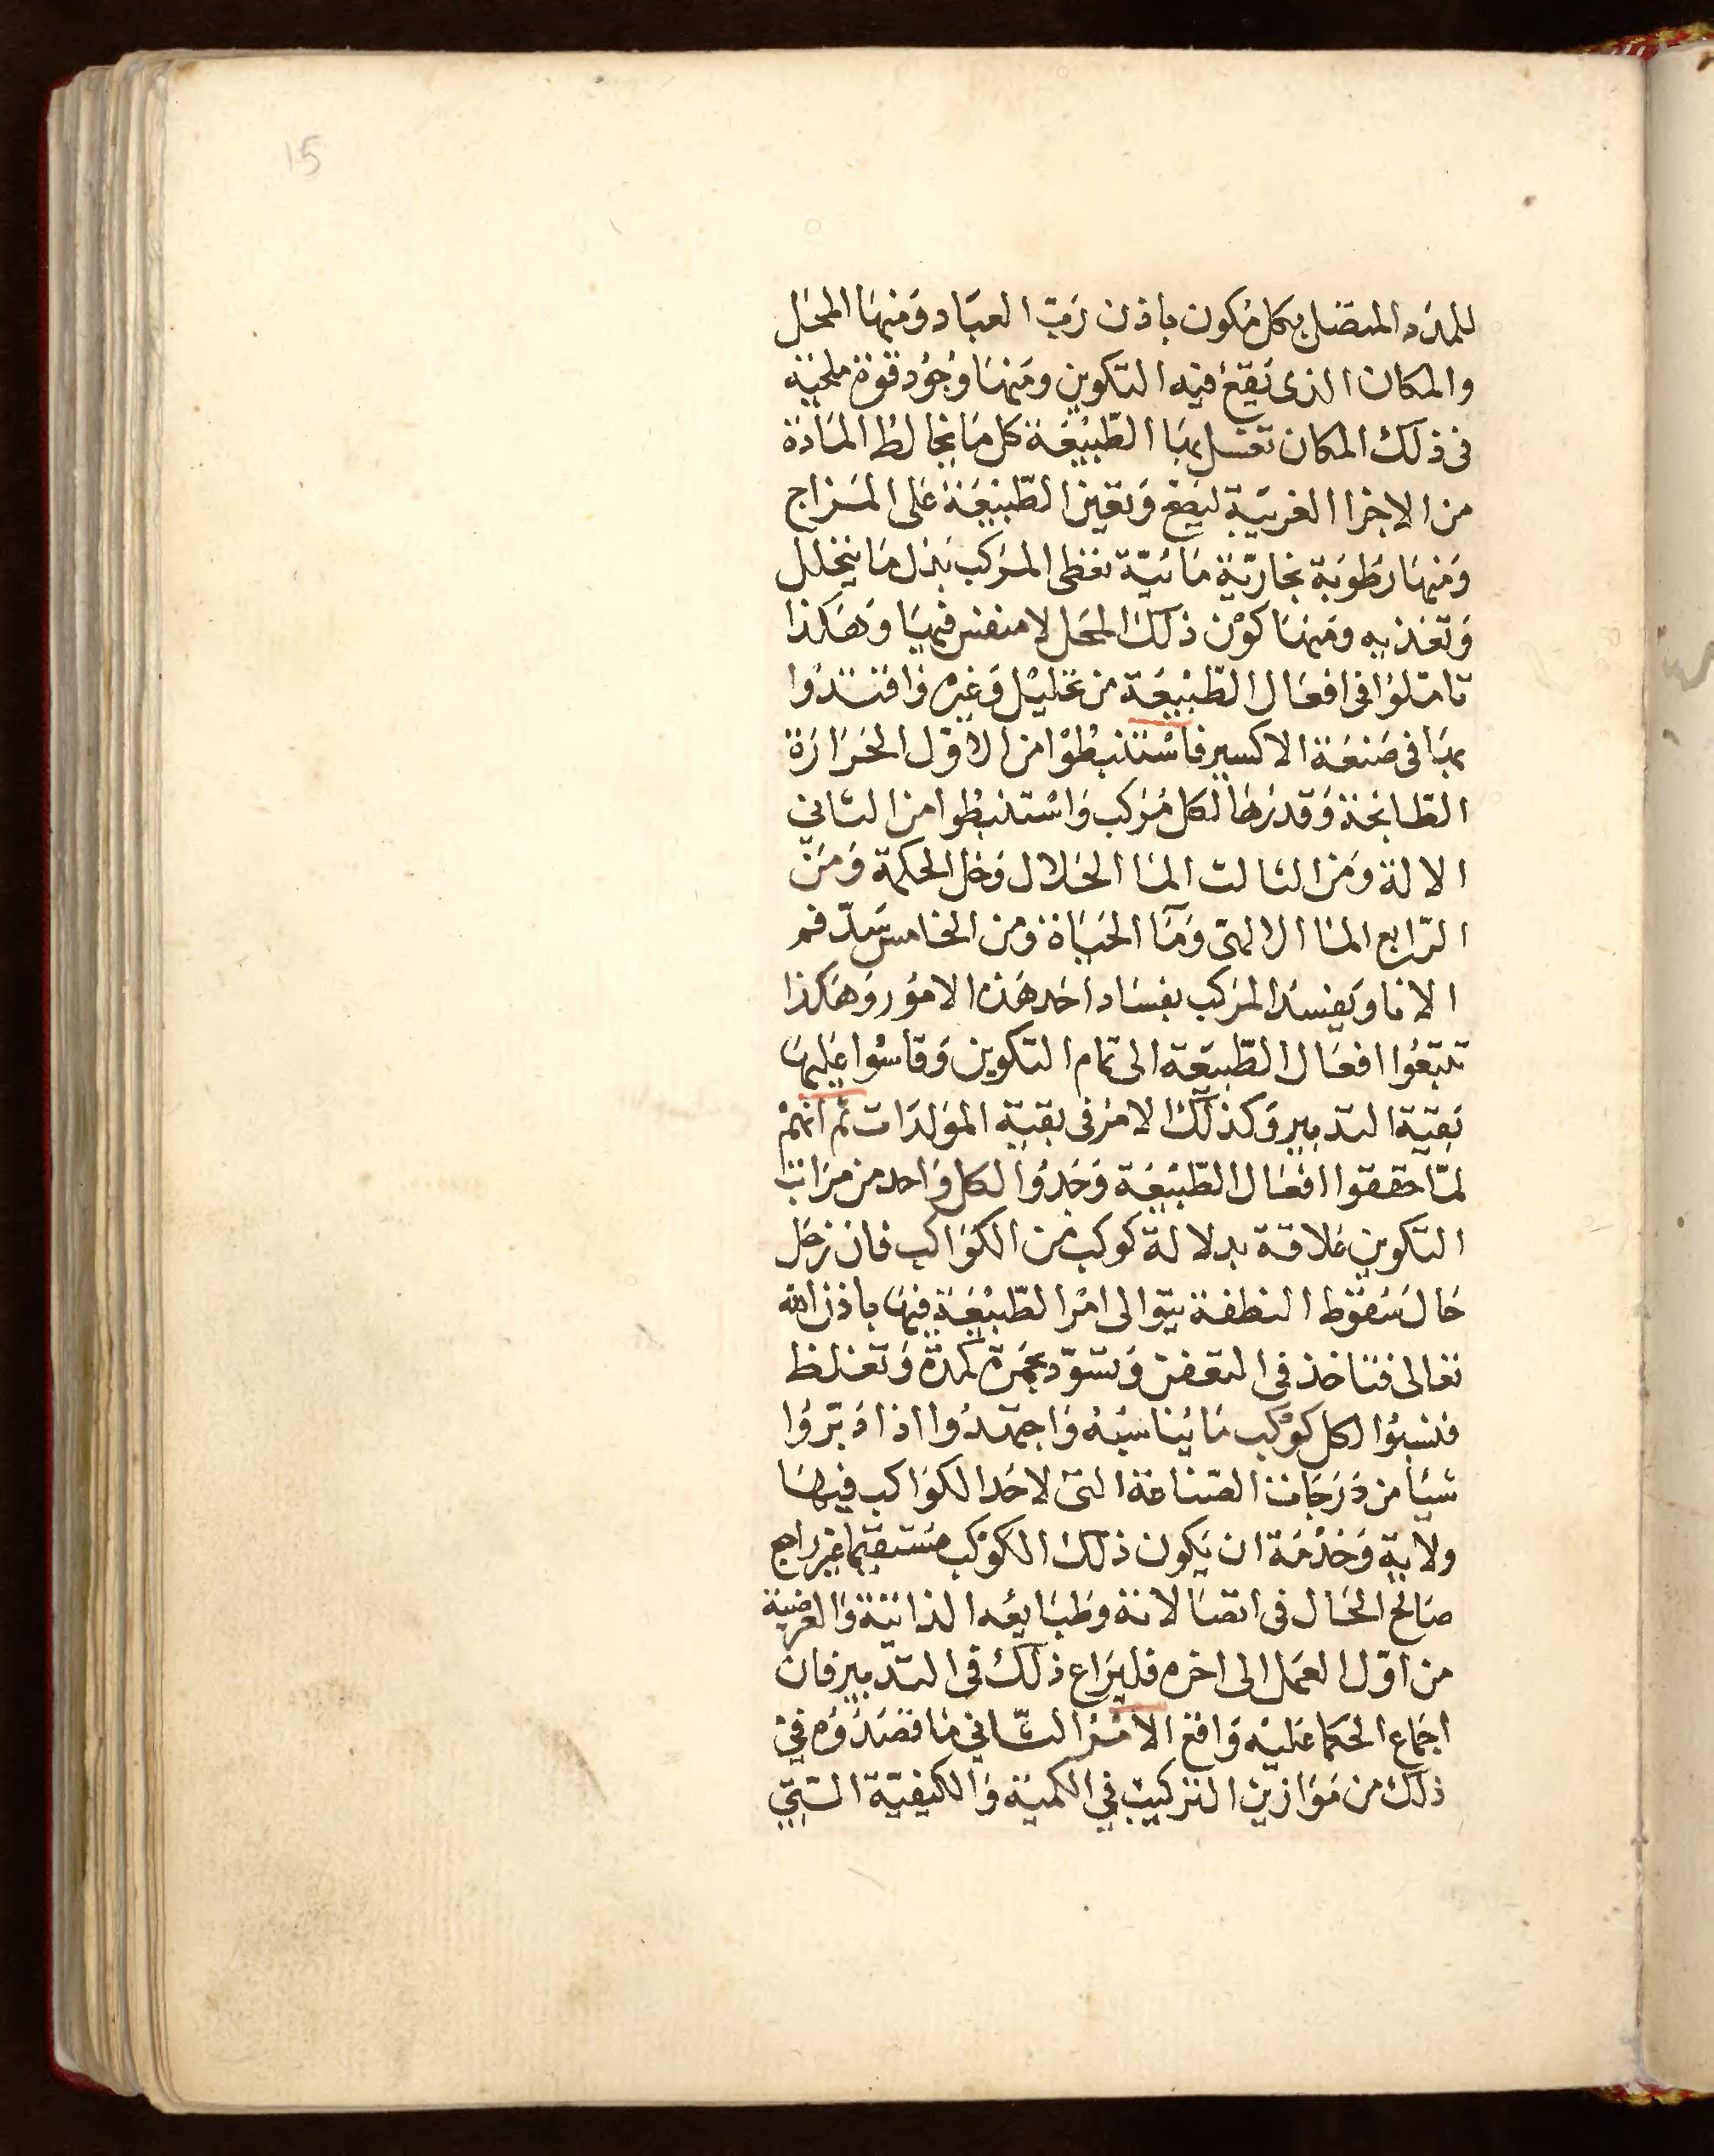 15
للمدد المتصل بكل مكون باذن رب العباد ومنها المحل
والمكان الذى يقع فيه التكوين ومنها وجود قوة ملحية
فى ذلك المكان تغسل بها الطبيعة كل ما يخالط المادة
من الاجزا الغريبة ليصح وتعين الطبيعة على المزاج
ومنها رطوبة بخارية مائية تعطى المركب بدل ما يتحلل
وتغذيه ومنها كون ذلك المحل لا منفس فيها وهكذا
تاملوا فى افعال الطبيعة من تحليل وغيره واقتدوا
بها فى صنعة الاكسير فاستنبطوا من الاول الحرارة
الطابخة وقدرها لكل مركب واستنبطوا من الثانى
الالة ومن الثالث الما الحلال وخل الحكمة ومن
الرابع الما الالهى وما الحياة ومن الخامس سد فم
الانا ويفسد المركب بفساد احد هذه الامور وهكذا
تتبعوا افعال الطبيعة الى تمام التكوين وقاسوا عليها
بقية التدبير وكذلك الامر فى بقية المولدات ثم انهم
لما حققوا افعال الطبيعة وجدوا لكل واحد من مراتب
التكوين علاقة بدلالة كوكب من الكواكب فان زحل
حال سقوط النطفة يتوالى امر الطبيعة فيها باذن الله
تعالى فتاخذ فى التعفن وتسود بحمرة كمدة وتغلظ
فنسبوا لكل كوكب ما يناسبه واجتهدوا اذا دبروا
شيا من درجات الصناعة التى لاحد الكواكب فيها
ولاية وخدمة ان يكون ذلك الكوكب مستقيما غير راجع
صالح الحال فى اتصالاته وطبايعه الذاتية والعرضية
من اول العمل الى اخره فليراع ذلك فى التدبير فان
اجماع الحكما عليه واقع الامر الثانى ما قصدوه فى
ذلك من موازين التركيب فى الكمية والكيفية التى